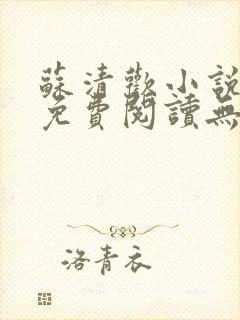 蘇清歡小說
免費閱讀無
洛青衣